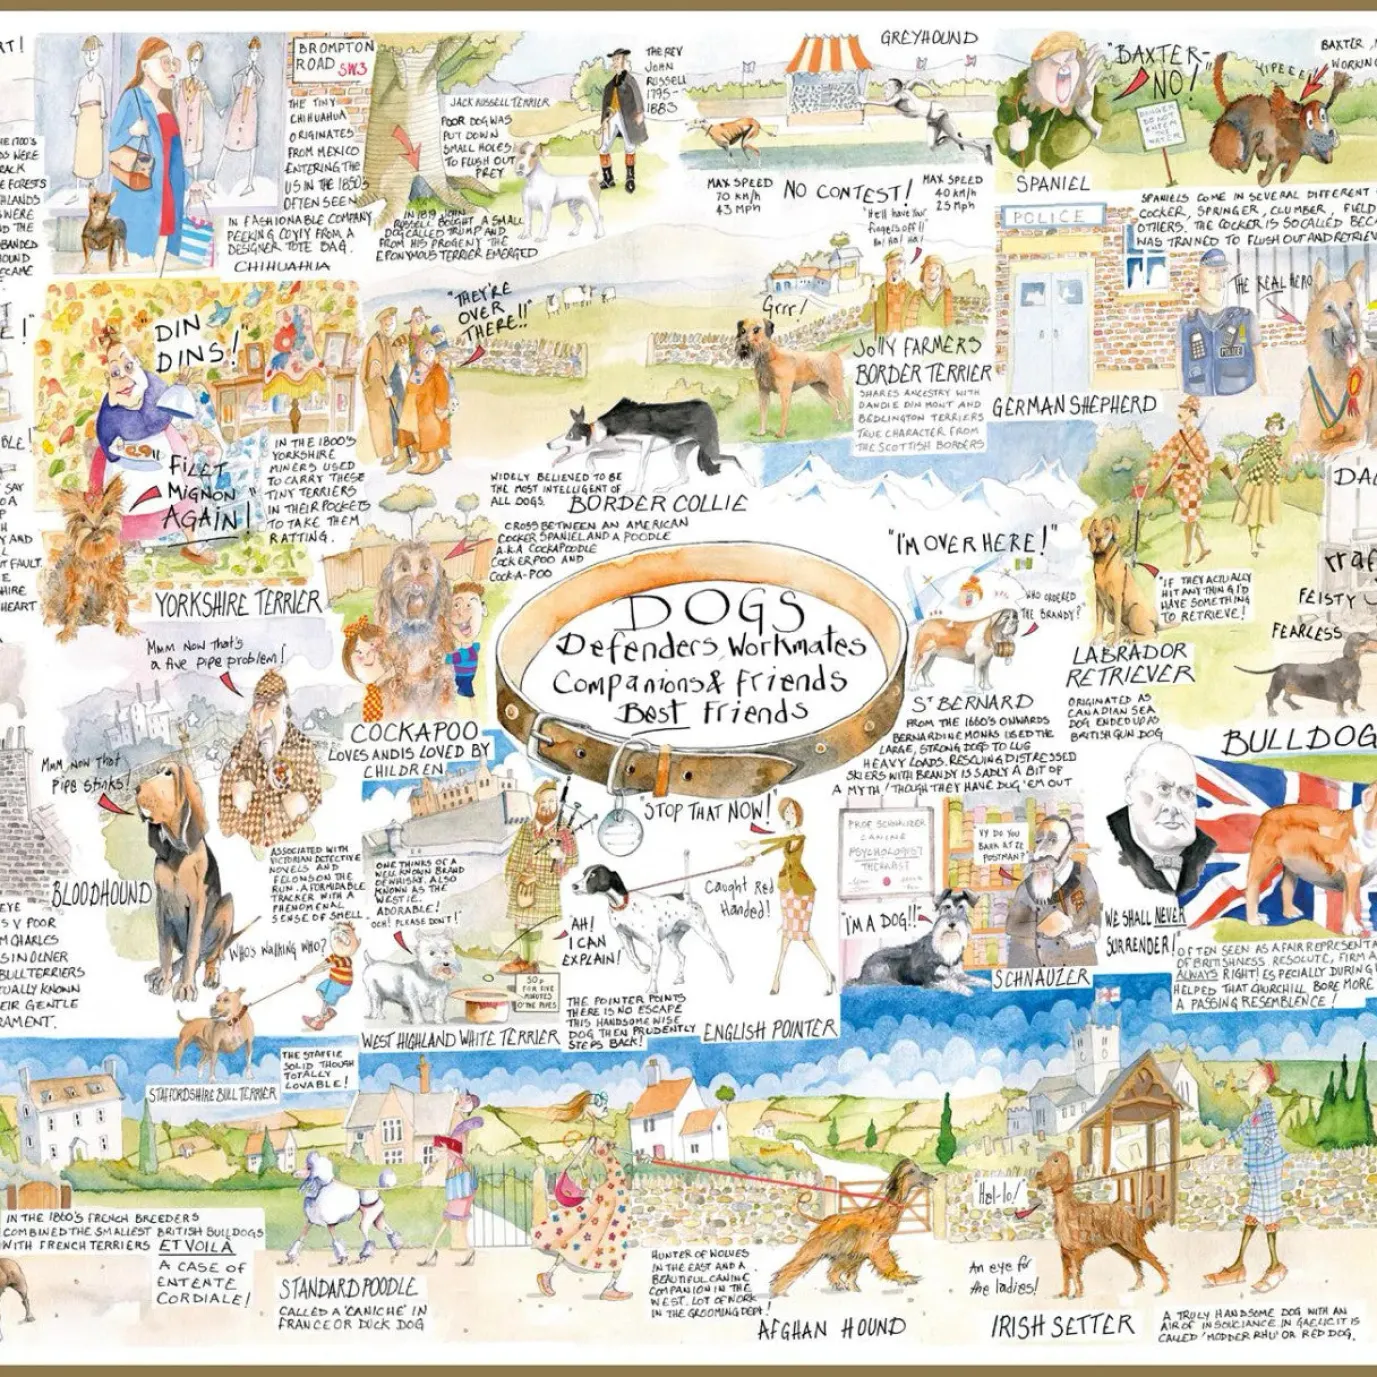 BROMPTON
ROAD SW3
THE TINY
CHIHUAHUA
ORIGINATES
FROM MEXICO
ENTERING THE
US IN THE 1850s
OFTEN SEEN
IN FASHIONABLE COMPANY
PEEKING COYLY FROM A
DESIGNER TOTE BAG.
CHIHUAHUA
JACK RUSSELL TERRIER
POOR DOG WAS
PUT DOWN
SMALL HOLES
TO FLUSH OUT
PREY
IN 1819 JOHN
RUSSELL BOUGHT A SMALL
DOG CALLED TRUMP AND
FROM HIS PROGENY THE
EPONYMOUS TERRIER EMERGED
THE REV
JOHN
RUSSELL
1795-
1883
GREYHOUND
MAX SPEED
70 KM/H
43 Mph
NO CONTEST!
MAX SPEED
40 KM/H
25 Mph
"BAXTER-
NO!"
YIPEEE!
BAXTER,
WORKING
DANGER
DO NOT
ENTER
THE
WATER
SPANIEL
SPANIELS COME IN SEVERAL DIFFERENT
COCKER, SPRINGER, CLUMBER, FIELD
OTHERS. THE COCKER IS SO CALLED BEC
WAS TRAINED TO FLUSH OUT AND RETRIEVE
POLICE
THE REAL HERO
POLICE
GERMAN SHEPHERD
"He'll have your
fingers off!!
Ha! Ha! Ha!
Grrr!
JOLLY FARMERS
BORDER TERRIER
SHARES ANCESTRY WITH
DANDIE DINMONT AND
BEDLINGTON TERRIERS
TRUE CHARACTER FROM
THE SCOTTISH BORDERS
"THEY'RE
OVER
THERE!!"
WIDELY BELIEVED TO BE
THE MOST INTELLIGENT OF
ALL DOGS.
BORDER COLLIE
"DIN
DINS!"
"FILET
MIGNON
AGAIN!"
IN THE 1800'S
YORKSHIRE
MINERS USED
TO CARRY THESE
TINY TERRIERS
IN THEIR POCKETS
TO TAKE THEM
RATTING.
YORKSHIRE TERRIER
CROSS BETWEEN AN AMERICAN
COCKER SPANIEL AND A POODLE
A.K.A COCKAPOODLE
COCKERPOO AND
COCK-A-POO
COCKAPOO
LOVES AND IS LOVED BY
CHILDREN
DOGS
Defenders, Workmates
Companions & Friends
Best Friends
"I'M OVER HERE!"
WHO ORDERED
THE BRANDY?
ST BERNARD
FROM THE 1660'S ONWARDS
BERNARDINE MONKS USED THE
LARGE, STRONG DOGS TO LUG
HEAVY LOADS. RESCUING DISTRESSED
SKIERS WITH BRANDY IS SADLY A BIT OF
A MYTH! THOUGH THEY HAVE DUG 'EM OUT
"IF THEY ACTUALLY
HIT ANYTHING I'D
HAVE SOMETHING
TO RETRIEVE!
LABRADOR
RETRIEVER
ORIGINATED AS
CANADIAN SEA
DOG ENDED UP AS
BRITISH GUN DOG
FEISTY
FEARLESS
BULLDOG
WE SHALL NEVER
SURRENDER!
OFTEN SEEN AS A FAIR REPRESENTA
OF BRITISHNESS. RESOLUTE, FIRM A
ALWAYS RIGHT! ESPECIALLY DURING
HELPED THAT CHURCHILL BORE MORE
A PASSING RESEMBLENCE!
Mmm Now that's
a five pipe problem!
Mmm, now that
pipe stinks!
BLOODHOUND
ASSOCIATED WITH
VICTORIAN DETECTIVE
NOVELS AND
FELONS ON THE
RUN. A FORMIDABLE
TRACKER WITH A
PHENOMENAL
SENSE OF SMELL.
ONE THINKS OF A
WELL KNOWN BRAND
OF WHISKY. ALSO
KNOWN AS THE
WESTIE.
ADORABLE!
OCH! PLEASE DON'T!"
50p
FOR FIVE
MINUTES
O' THE PIPES
WEST HIGHLAND WHITE TERRIER
"STOP THAT NOW!"
Caught Red
Handed!
AH!
I CAN
EXPLAIN!
THE POINTER POINTS
THERE IS NO ESCAPE
THIS HANDSOME WISE
DOG THEN PRUDENTLY
STEPS BACK!
ENGLISH POINTER
PROF SCHNAUZER
CANINE
PSYCHOLOGIST
THERAPIST
"VY DO YOU
BARK AT ZE
POSTMAN?"
"I'M A DOG!!"
SCHNAUZER
WHO'S WALKING WHO?
THE STAFFIE
SOLID THOUGH
TOTALLY
LOVABLE!
STAFFORDSHIRE BULL TERRIER
IN THE 1860'S FRENCH BREEDERS
COMBINED THE SMALLEST BRITISH BULLDOGS
WITH FRENCH TERRIERS ET VOILÀ
A CASE OF
ENTENTE
CORDIALE!
STANDARD POODLE
CALLED A 'CANICHE' IN
FRANCE OR DUCK DOG
HUNTER OF WOLVES
IN THE EAST AND A
BEAUTIFUL CANINE
COMPANION IN THE
WEST. LOT OF WORK
IN THE GROOMING DEPT!
AFGHAN HOUND
"Hal-lo!"
An eye for
the ladies!
IRISH SETTER
A TRULY HANDSOME DOG WITH AN
AIR OF INSOUCIANCE. IN GAELIC IT IS
CALLED 'MODDER RHU' OR RED DOG.